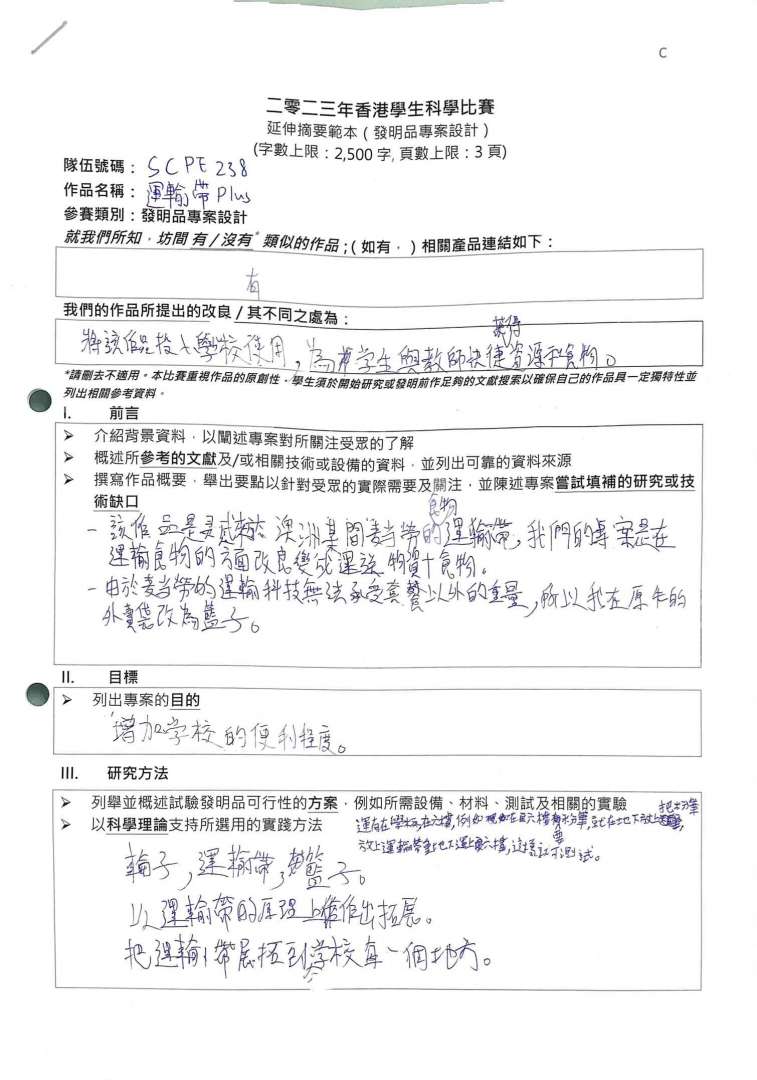 C
二零二三年香港學生科學比賽
延伸摘要範本（發明品專案設計）
(字數上限：2,500 字, 頁數上限：3 頁)
隊伍號碼： SCPE 238
作品名稱： 運輸帶 Plus
參賽類別：發明品專案設計
就我們所知，坊間 有 / 沒有* 類似的作品；( 如有， ) 相關產品連結如下：
有
我們的作品所提出的改良 / 其不同之處為：
獲得
將該作品投入學校使用，為學生與教師快捷資源和食物。
*請刪去不適用。本比賽重視作品的原創性，學生須於開始研究或發明前作足夠的文獻搜索以確保自己的作品具一定獨特性並
列出相關參考資料。
I. 前言
➤ 介紹背景資料，以闡述專案對所關注受眾的了解
➤ 概述所參考的文獻及/或相關技術或設備的資料，並列出可靠的資料來源
➤ 撰寫作品概要，舉出要點以針對受眾的實際需要及關注，並陳述專案嘗試填補的研究或技
術缺口
食物
- 該作品是靈感 澳洲某間麥当勞的運輸帶，我們的專案是在
運輸食物的方面改良變成運送物資+食物。
- 由於麦当勞的運輸科技無法承受套餐以外的重量，所以我在原本的
外賣袋改為籃子。
II. 目標
➤ 列出專案的目的
增加学校的便利程度。
III. 研究方法
➤ 列舉並概述試驗發明品可行性的方案，例如所需設備、材料、測試及相關的實驗
➤ 以科學理論支持所選用的實踐方法
輪子，運輸帶，籃子。
以運輸帶的原理上作出拓展。
把運輸帶展拓到学校每一個地方。